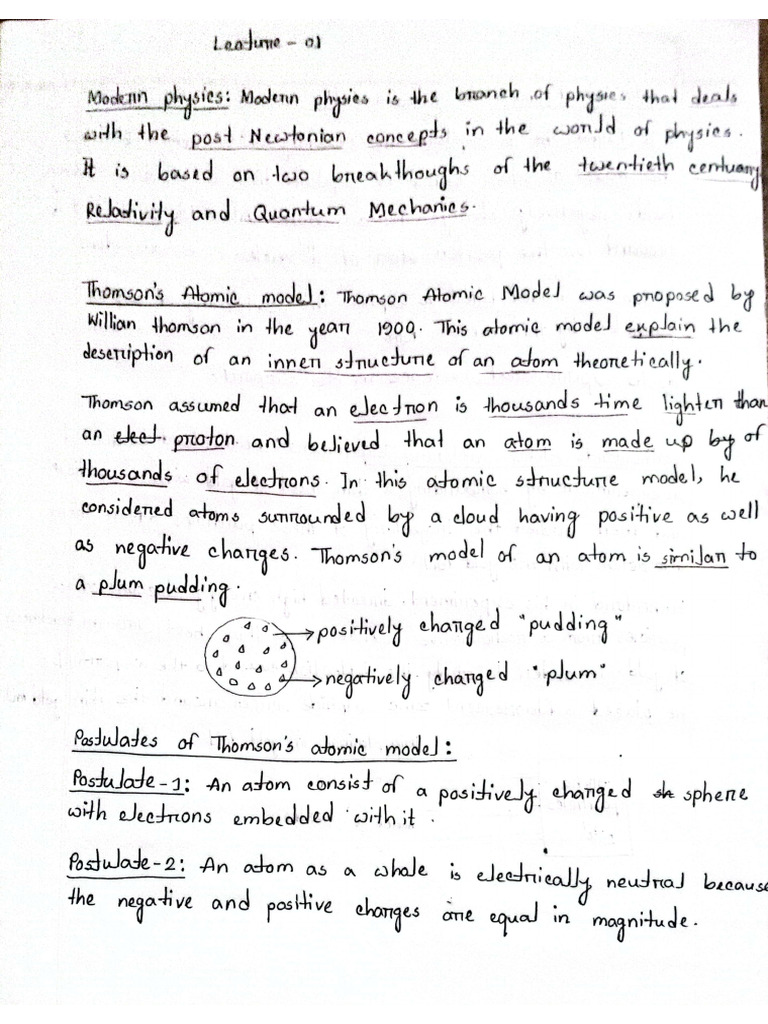 Lecture - 01
Modern physics: Modern physics is the branch of physics that deals
with the post Newtonian concepts in the world of physics.
It is based on two breakthoughs of the twentieth centuary
Relativity and Quantum Mechanics.
Thomson's Atomic model: Thomson Atomic Model was proposed by
Willian thomson in the year 1900. This atomic model explain the
description of an inner structure of an atom theoretically.
Thomson assumed that an electron is thousands time lighter than
an elect proton and believed that an atom is made up by of
thousands of electrons. In this atomic structure model, he
considered atoms surrounded by a cloud having positive as well
as negative charges. Thomson's model of an atom is similar to
a plum pudding.
positively charged "pudding"
negatively charged "plum"
Postulates of Thomson's atomic model:
Postulate-1: An atom consist of a positively charged sh sphere
with electrons embedded with it.
Postulate-2: An atom as a whole is electrically neutral because
the negative and positive charges are equal in magnitude.